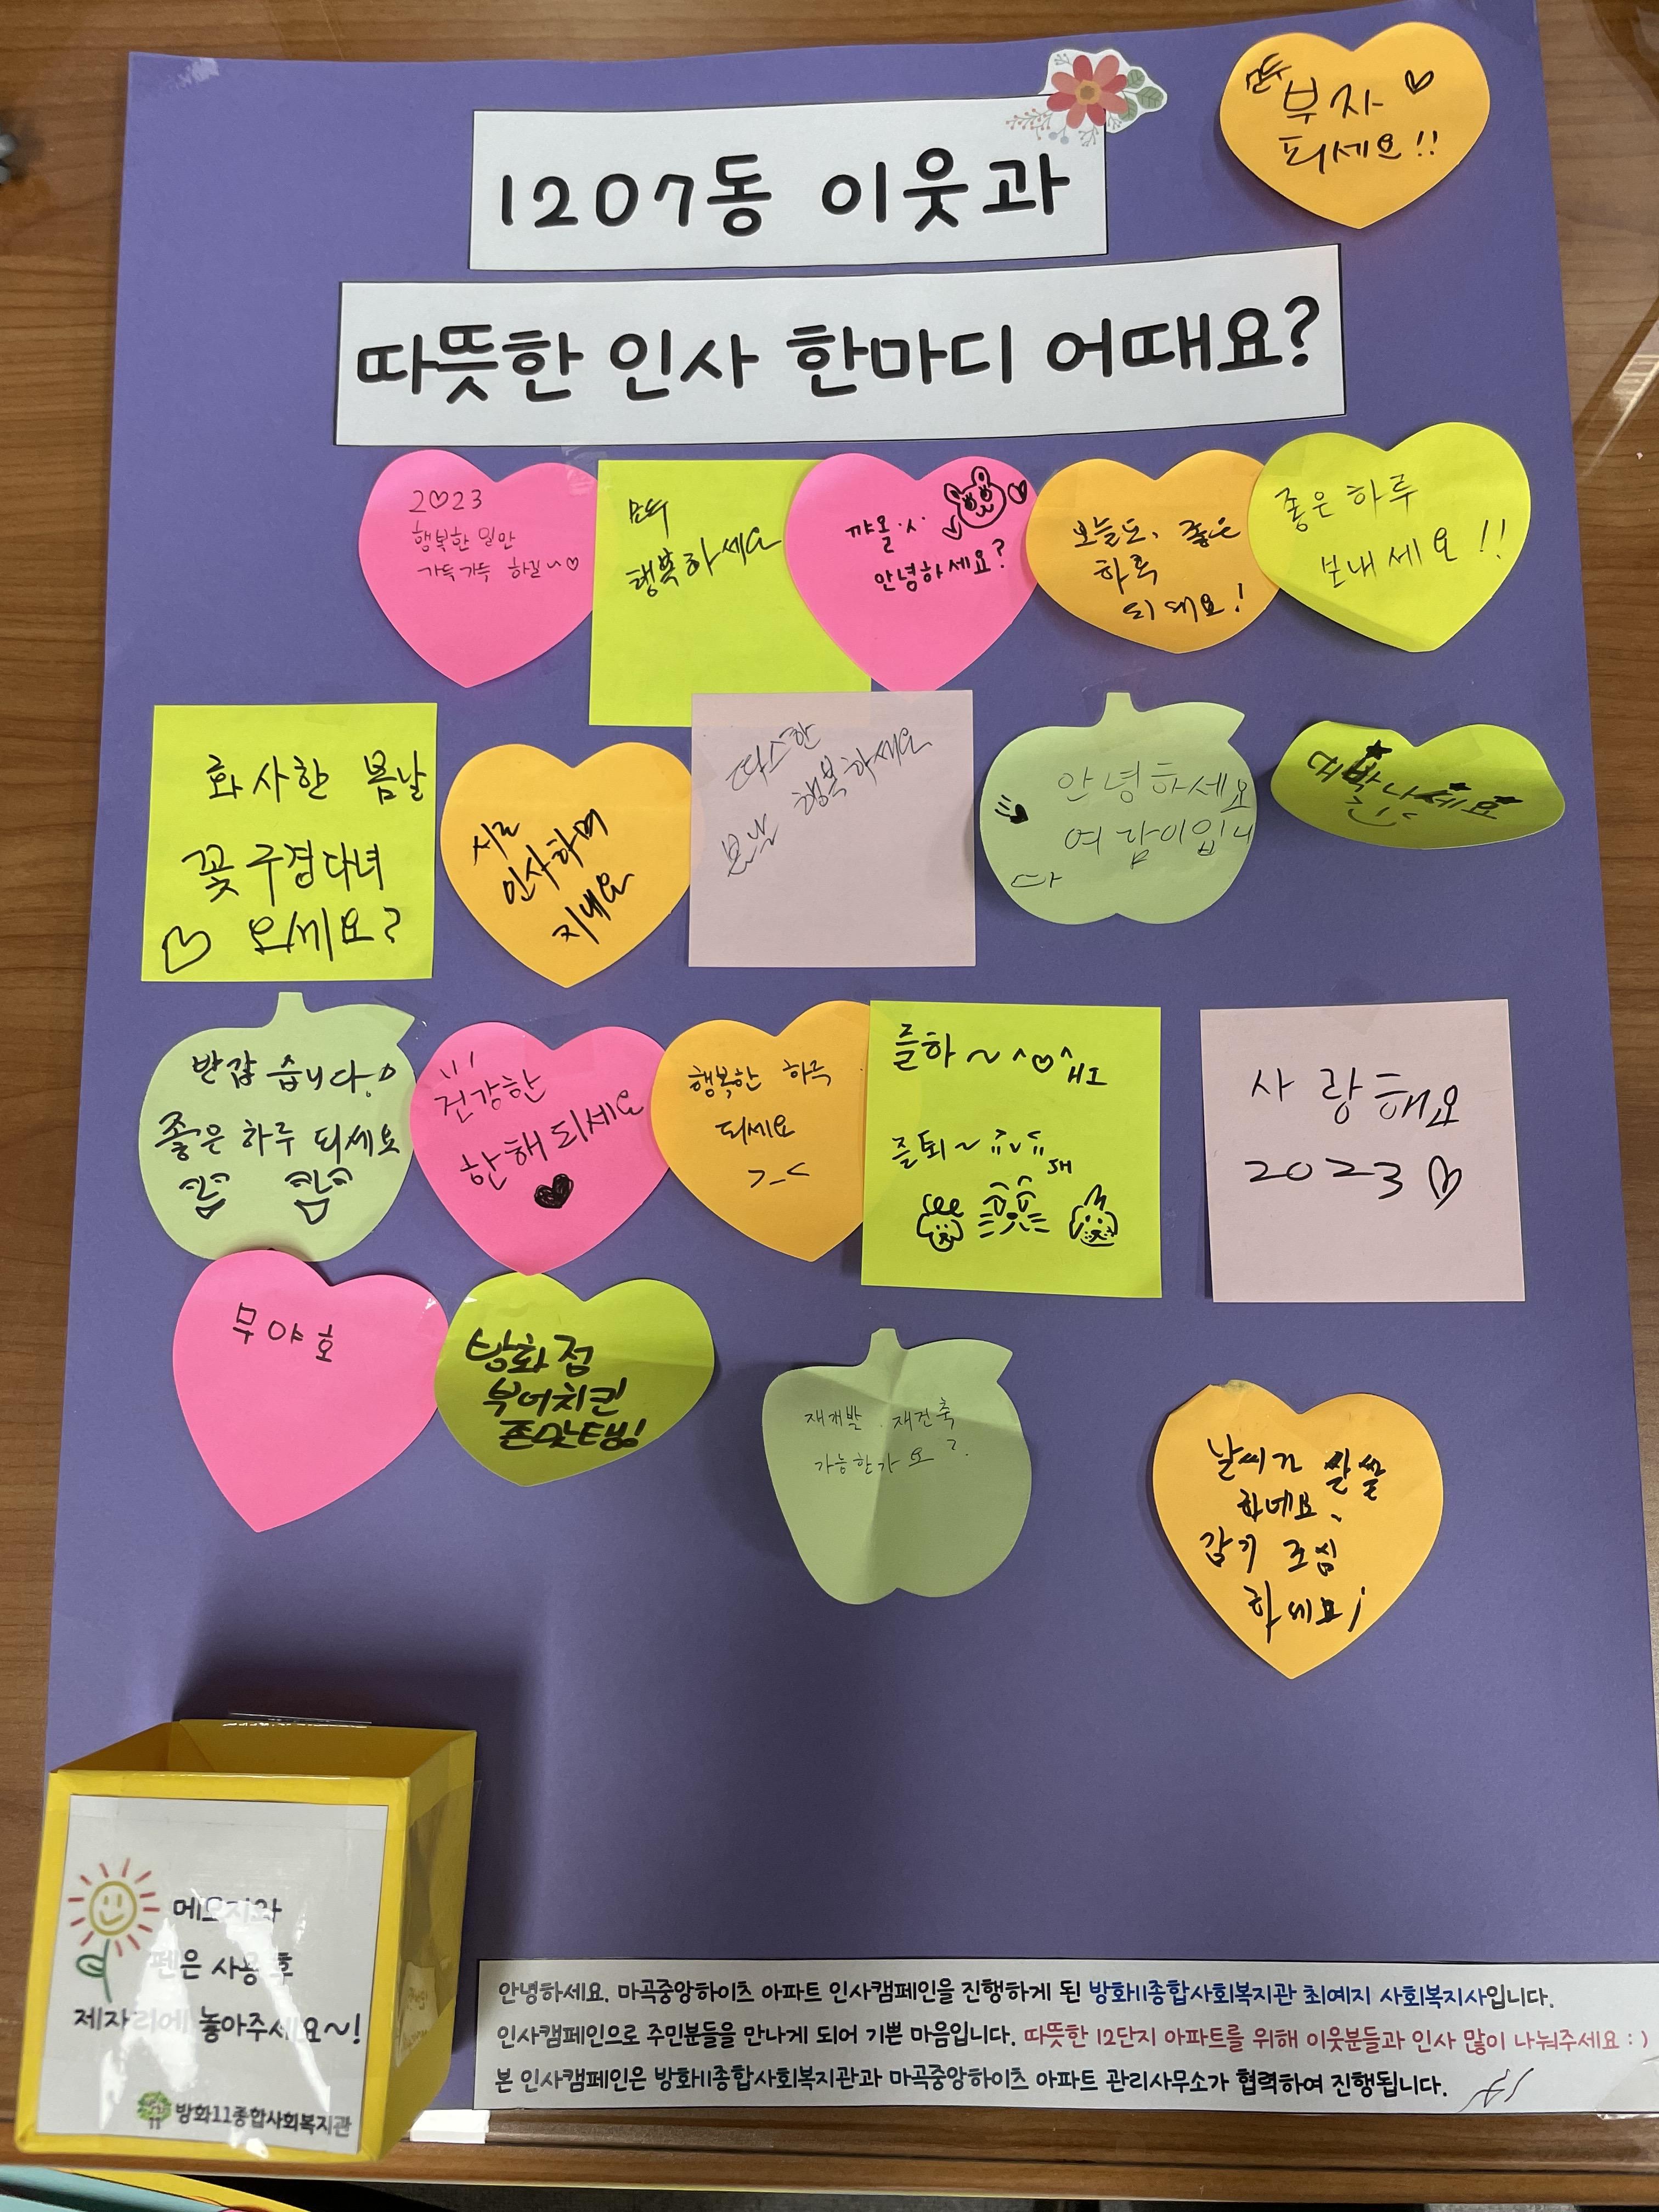 모두
부자♡
되세요!!
1207동 이웃과
따뜻한 인사 한마디 어때요?
2♡23
행복한 일만
가득가득 하길~♡
모두
행복하세요
꺄올·ㅅ·
안녕하세요?
오늘도, 좋은
하루
되세요!
좋은 하루
보내세요!!
화사한 봄날
꽃구경다녀
오세요?
서로
인사하며
지내요
따스한
봄날
행복하세요
안녕하세요
여람이입니
다
대박나세요
반갑습니다.
좋은 하루 되세요
건강한
한해되세요
행복한 하루
되세요
>_<
즐하~^♡^
즐퇴~
JH
사랑해요
2023♡
무야호
방화점
부어치킨
존맛탱!
재개발. 재건축
가능한가요?
날씨가 쌀쌀
하네요.
감기 조심
하세요!
메모지와
펜은 사용 후
제자리에 놓아주세요~!
방화11종합사회복지관
안녕하세요. 마곡중앙하이츠 아파트 인사캠페인을 진행하게 된 방화11종합사회복지관 최예지 사회복지사입니다.
인사캠페인으로 주민분들을 만나게 되어 기쁜 마음입니다. 따뜻한 12단지 아파트를 위해 이웃분들과 인사 많이 나눠주세요 : )
본 인사캠페인은 방화11종합사회복지관과 마곡중앙하이츠 아파트 관리사무소가 협력하여 진행됩니다.